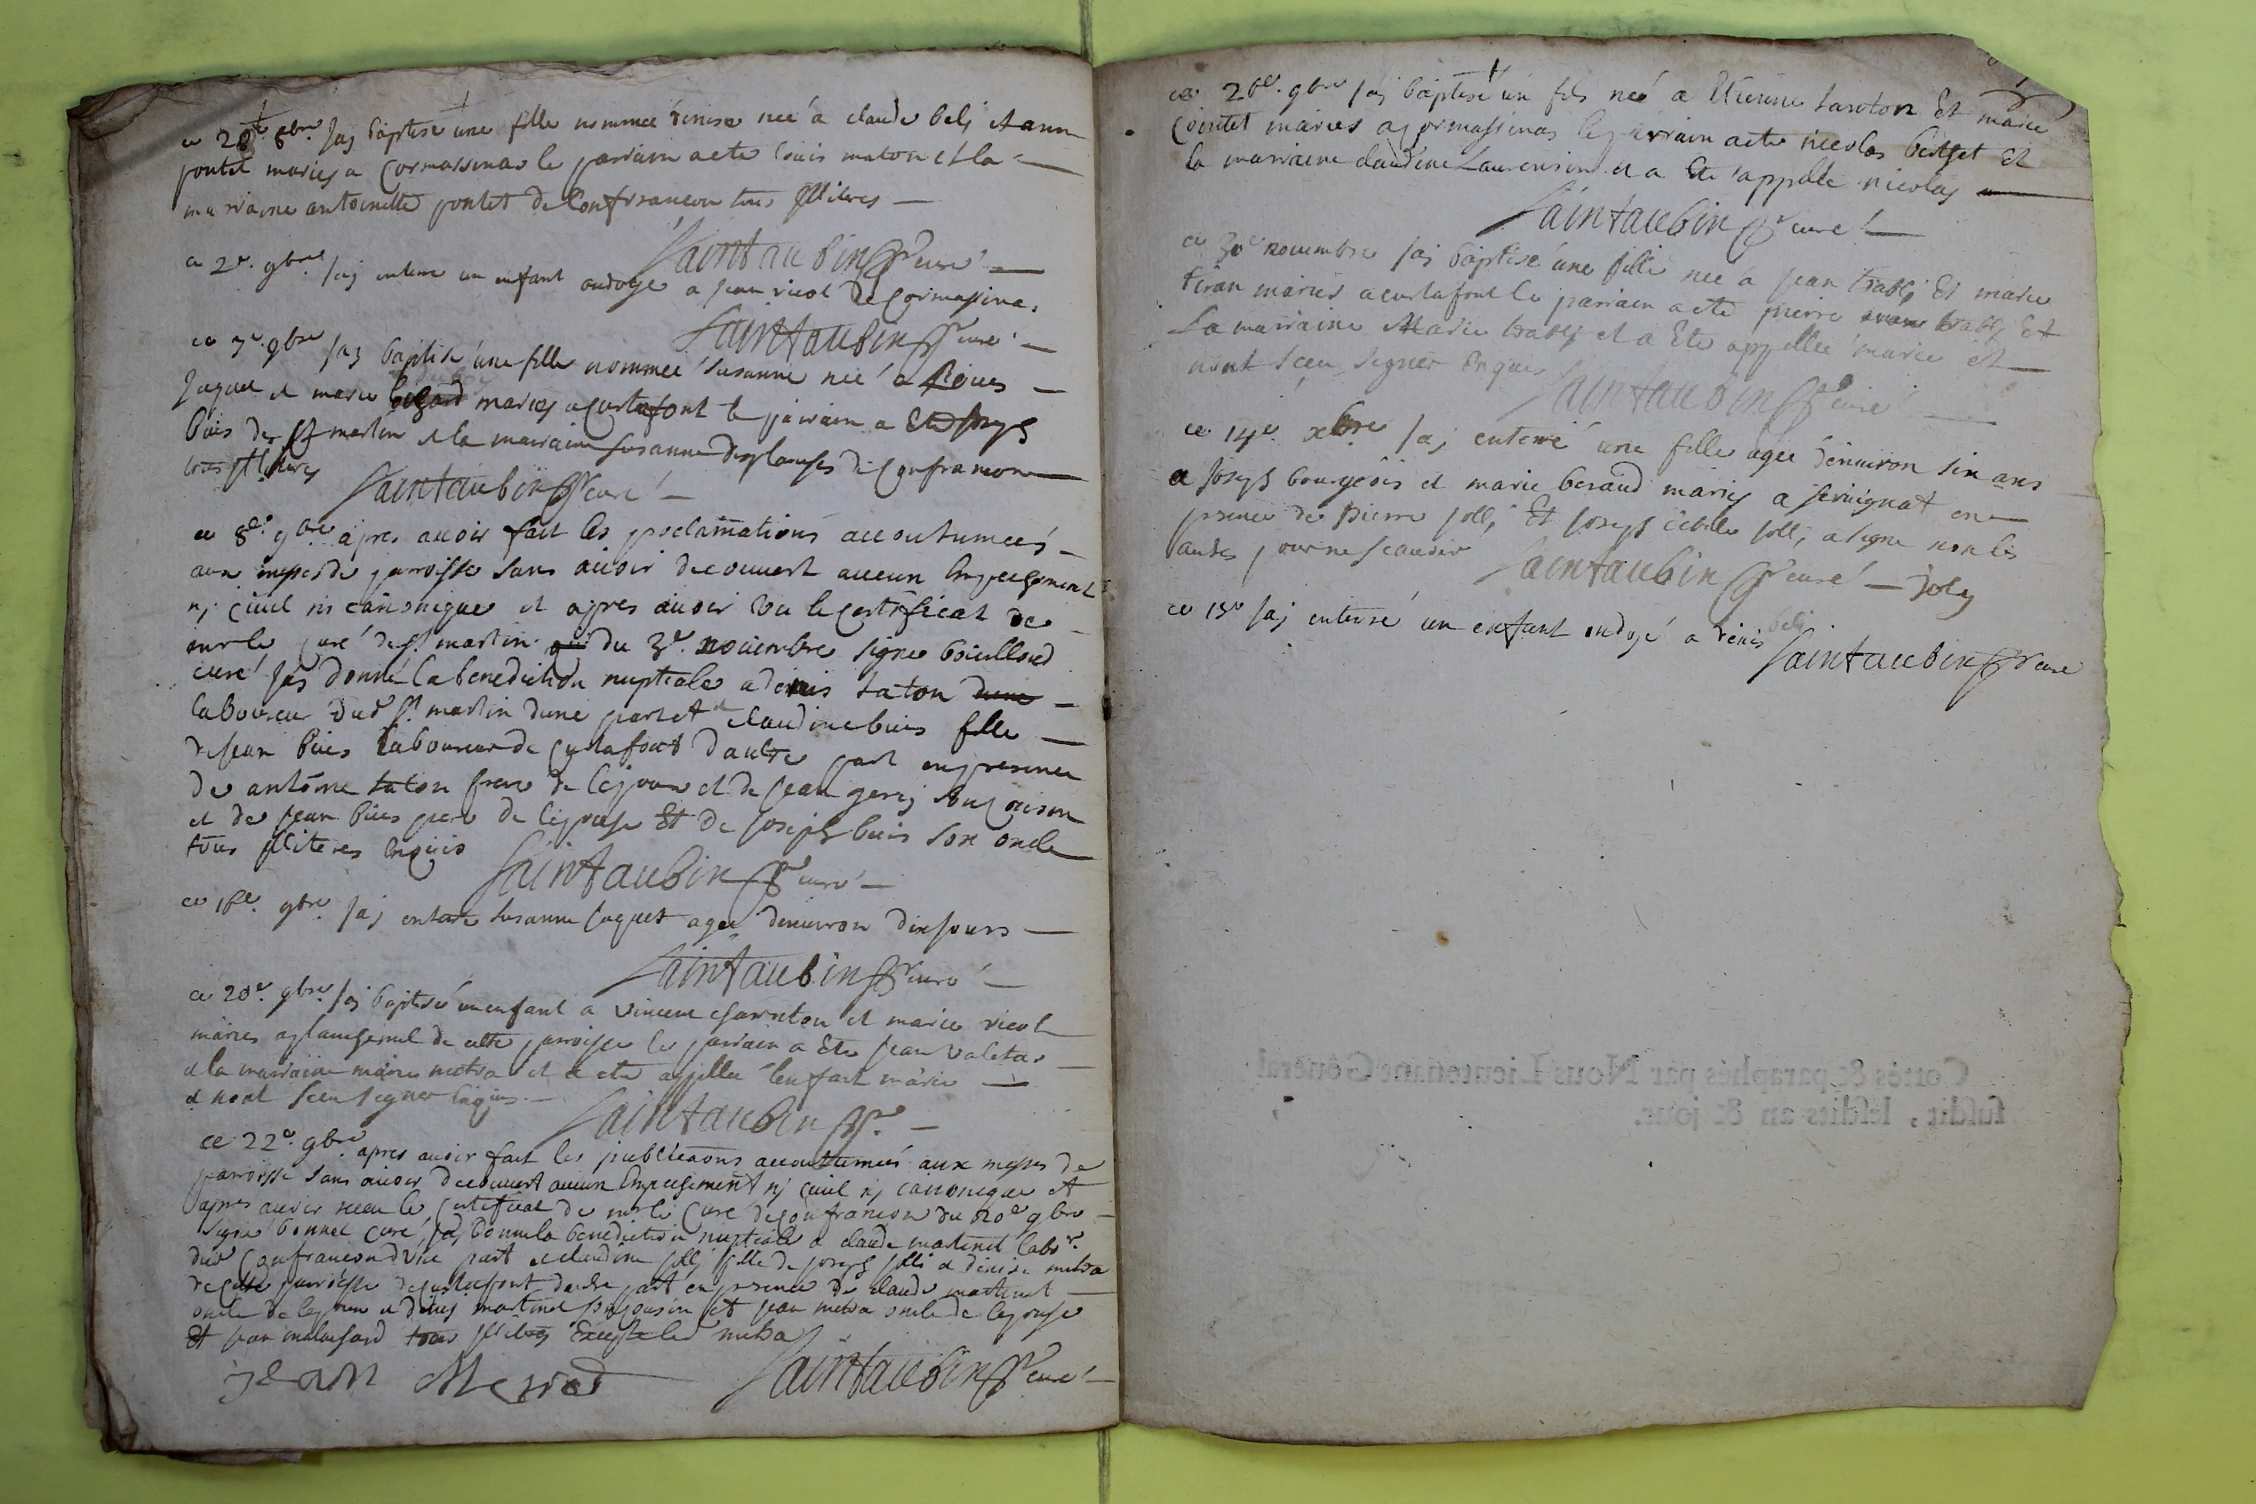 ce 28e 8bre jaj baptisé une fille nommeé denise neé a claude belj et ann
pontet mariez a Cormassinas le parrain a ete louis maton et la
marraine antoinette pontet de Confrançon tous illiteres
Saintaubin ptre curé
ce 2e. gbre jaj enterre un enfant ondoye a jean vicol de Cormassina.
Saintaubin ptre curé
ce 7e. gbre jaj baptisé une fille nommeé susanne neé a
Jaquet et marie mariez a Curtafont le parrain a Ete joseph
buis de st martin et la marraine susanne desplanches de Confrancon
tous illiteres Saintaubin ptre curé
ce 8e. gbre apres avoir fait les proclamations accoutumeés
aux messes de parroisse sans avoir decouvert aucun Empechement
nj civil nj canonique et apres avoir vu le certificat de
mr le curé de st martin du 3e. novembre signe bouilloud
curé jaj donné la benediction nuptiale a denis taton
laboureur dud st. martin dune part et claudine buis fille
de jean buis laboureur de Curtafont dautre part en presence
de antoine taton frere de lepoux et de jean gerej son cousin
et de jean buis pere de lepouse Et de joseph buis son oncle
tous illiteres Enquis Saintaubin ptre curé
ce 16e. gbre. jaj enterre susanne jaquet agee denviron dix jours
Saintaubin ptre curé
ce 20e. gbre. jaj baptisé un enfant a vincent charnton et marie vicol
mariez a planchemel de cette parroisse le parrain a Ete jean valetas
et la marraine marie metra et a ete appellee lenfant marie
et nont sceu signer Enquis.
Saintaubin ptre.
ce 22e. gbre apres avoir fait les publications accoutumeés aux messes de
parroisse sans avoir decouvert aucun Empechement nj civil nj canonique et
apres avoir receu le certificat de mr le Curé de Confrancon du 20e gbre
signé bonnet curé, jaj donne la benediction nuptiale a claude martinet labr.
dud Confrancon dune part et claudine jollj fille de joseph jolli et denise metra
de cette parroisse de Curtafont dautre part en presence de claude martinet
oncle de lepoux et denis martinet son cousin et jean metra oncle de lepouse
Et jean malachard tous illiteres Excepte led metra
jean Metrat Saintaubin ptre curé
ce 26e. gbre jaj baptisé un fils neé a Etienne tarnton Et marie
Cointet mariez a Cormassinas le parrain a ete nicolas berthet Et
la marraine claudine Laurensin et a Ete appelle nicolas
Saintaubin ptre curé
ce 30e novembre jaj baptisé une fille neé a jean trablj Et marie
tiran mariez a curtafont le parrain a ete pierre trablj Et
La marraine Marie trablj et a Ete appellee marie et
nont sceu signer Enquis Saintaubin ptre curé
ce 14e. xbre jaj enterré une fille agee denviron six ans
a joseph bourgeois et marie beraud mariez a servignat en
presence de pierre jollj Et joseph jollj a signe non les
autres pour ne scavoir Saintaubin ptre curé — Joly
ce 15e jaj enterré un enfant ondoyé a denis belj
Saintaubin ptre curé
Cottés & paraphés par Nous Lieutenant Général
susdit, lesdits an & jour.